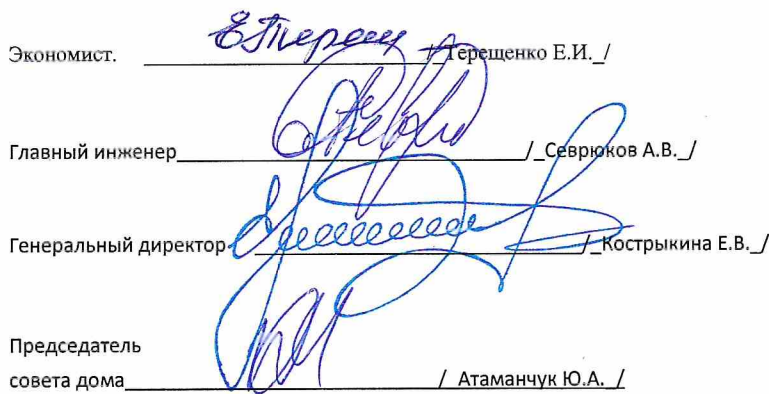 Экономист. /_Терещенко Е.И._/
Главный инженер /_Севрюков А.В._/
Генеральный директор /_Кострыкина Е.В._/
Председатель
совета дома /_Атаманчук Ю.А._/